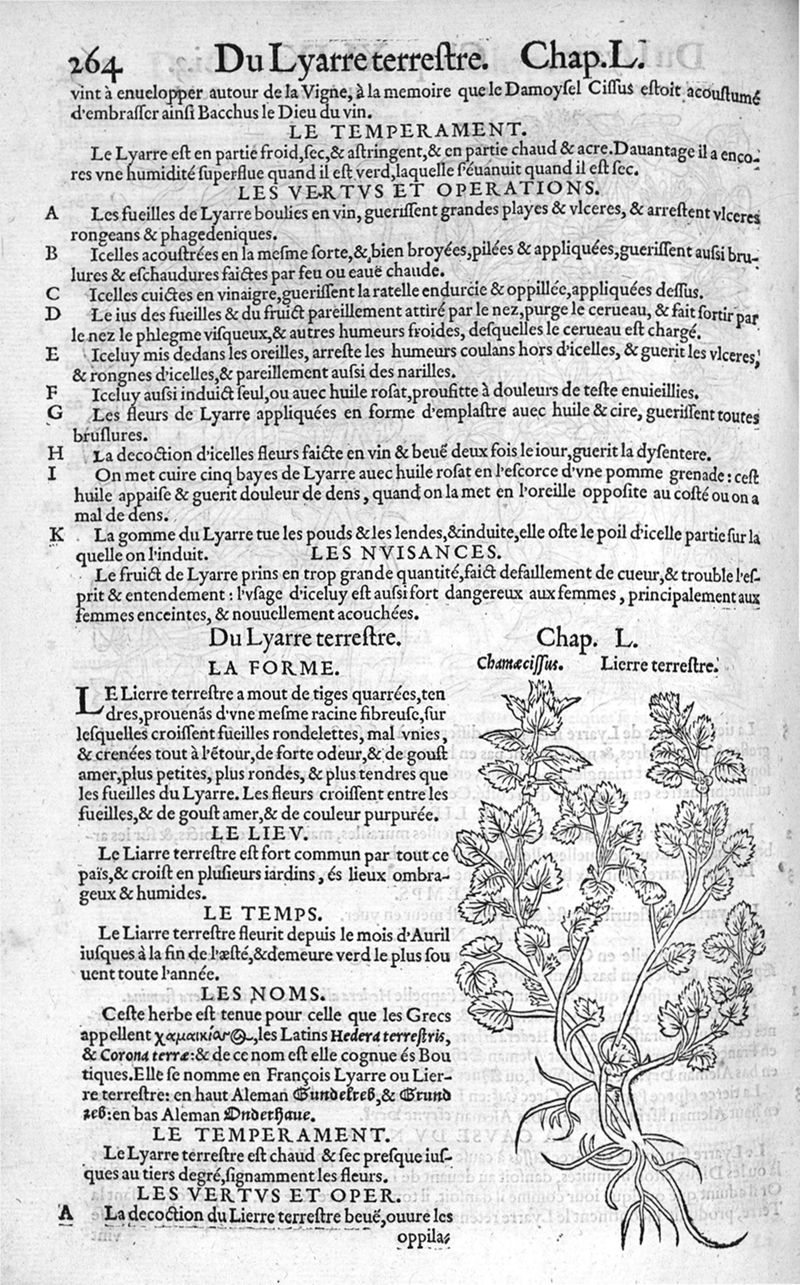 264 Du Lyarre terreſtre. Chap. L.
vint à enuelopper autour de la Vigne, à la memoire que le Damoyſel Ciſſus eſtoit acouſtumé
d'embraſſer ainſi Bacchus le Dieu du vin.
LE TEMPERAMENT.
Le Lyarre eſt en partie froid, ſec, & aſtringent, & en partie chaud & acre. Dauantage il a enco-
res vne humidité ſuperflue quand il eſt verd, laquelle ſ'éuanuit quand il eſt ſec.
LES VERTVS ET OPERATIONS.
A Les fueilles de Lyarre boulies en vin, gueriſſent grandes playes & vlceres, & arreſtent vlceres
rongeans & phagedeniques.
B Icelles acouſtrées en la meſme ſorte, & bien broyées, pilées & appliquées, gueriſſent auſsi bru-
lures & eſchaudures faictes par feu ou eauë chaude.
C Icelles cuictes en vinaigre, gueriſſent la ratelle endurcie & oppillée, appliquées deſſus.
D Le ius des fueilles & du fruict pareillement attiré par le nez, purge le cerueau, & fait ſortir par
le nez le phlegme viſqueux, & autres humeurs froides, deſquelles le cerueau eſt chargé.
E Iceluy mis dedans les oreilles, arreſte les humeurs coulans hors d'icelles, & guerit les vlceres,
& rongnes d'icelles, & pareillement auſsi des narilles.
F Iceluy auſsi induict ſeul, ou auec huile roſat, proufitte à douleurs de teſte enuieillies.
G Les fleurs de Lyarre appliquées en forme d'emplaſtre auec huile & cire, gueriſſent toutes
bruſlures.
H La decoction d'icelles fleurs faicte en vin & beuë deux fois le iour, guerit la dyſentere.
I On met cuire cinq bayes de Lyarre auec huile roſat en l'eſcorce d'vne pomme grenade: ceſt
huile appaiſe & guerit douleur de dens, quand on la met en l'oreille oppoſite au coſté ou on a
mal de dens.
K La gomme du Lyarre tue les pouds & les lendes, & induite, elle oſte le poil d'icelle partie ſur la
quelle on l'induit. LES NVISANCES.
Le fruict de Lyarre prins en trop grande quantité, faict defaillement de cueur, & trouble l'eſ-
prit & entendement: l'vſage d'iceluy eſt auſsi fort dangereux aux femmes, principalement aux
femmes enceintes, & nouuellement acouchées.
Du Lyarre terreſtre. Chap. L.
LA FORME.
LE Lierre terreſtre a mout de tiges quarrées, ten
dres, prouenās d'vne meſme racine fibreuſe, ſur
leſquelles croiſſent fueilles rondelettes, mal vnies,
& crenées tout à l'ētour, de forte odeur, & de gouſt
amer, plus petites, plus rondes, & plus tendres que
les fueilles du Lyarre. Les fleurs croiſſent entre les
fueilles, & de gouſt amer, & de couleur purpurée.
LE LIEV.
Le Liarre terreſtre eſt fort commun par tout ce
païs, & croiſt en pluſieurs iardins, és lieux ombra-
geux & humides.
LE TEMPS.
Le Liarre terreſtre fleurit depuis le mois d'Auril
iuſques à la fin de l'æſté, & demeure verd le plus ſou
uent toute l'année.
LES NOMS.
Ceſte herbe eſt tenue pour celle que les Grecs
appellent χαμαικίσσος, les Latins Hedera terreſtris,
& Corona terræ: & de ce nom eſt elle cognue és Bou
tiques. Elle ſe nomme en François Lyarre ou Lier-
re terreſtre: en haut Aleman Gundelreb, & Grund
reb: en bas Aleman Onderhaue.
LE TEMPERAMENT.
Le Lyarre terreſtre eſt chaud & ſec preſque iuſ-
ques au tiers degré, ſignamment les fleurs.
LES VERTVS ET OPER.
A La decoction du Lierre terreſtre beuë, ouure les
oppila-
Chamæciſſus. Lierre terreſtre.